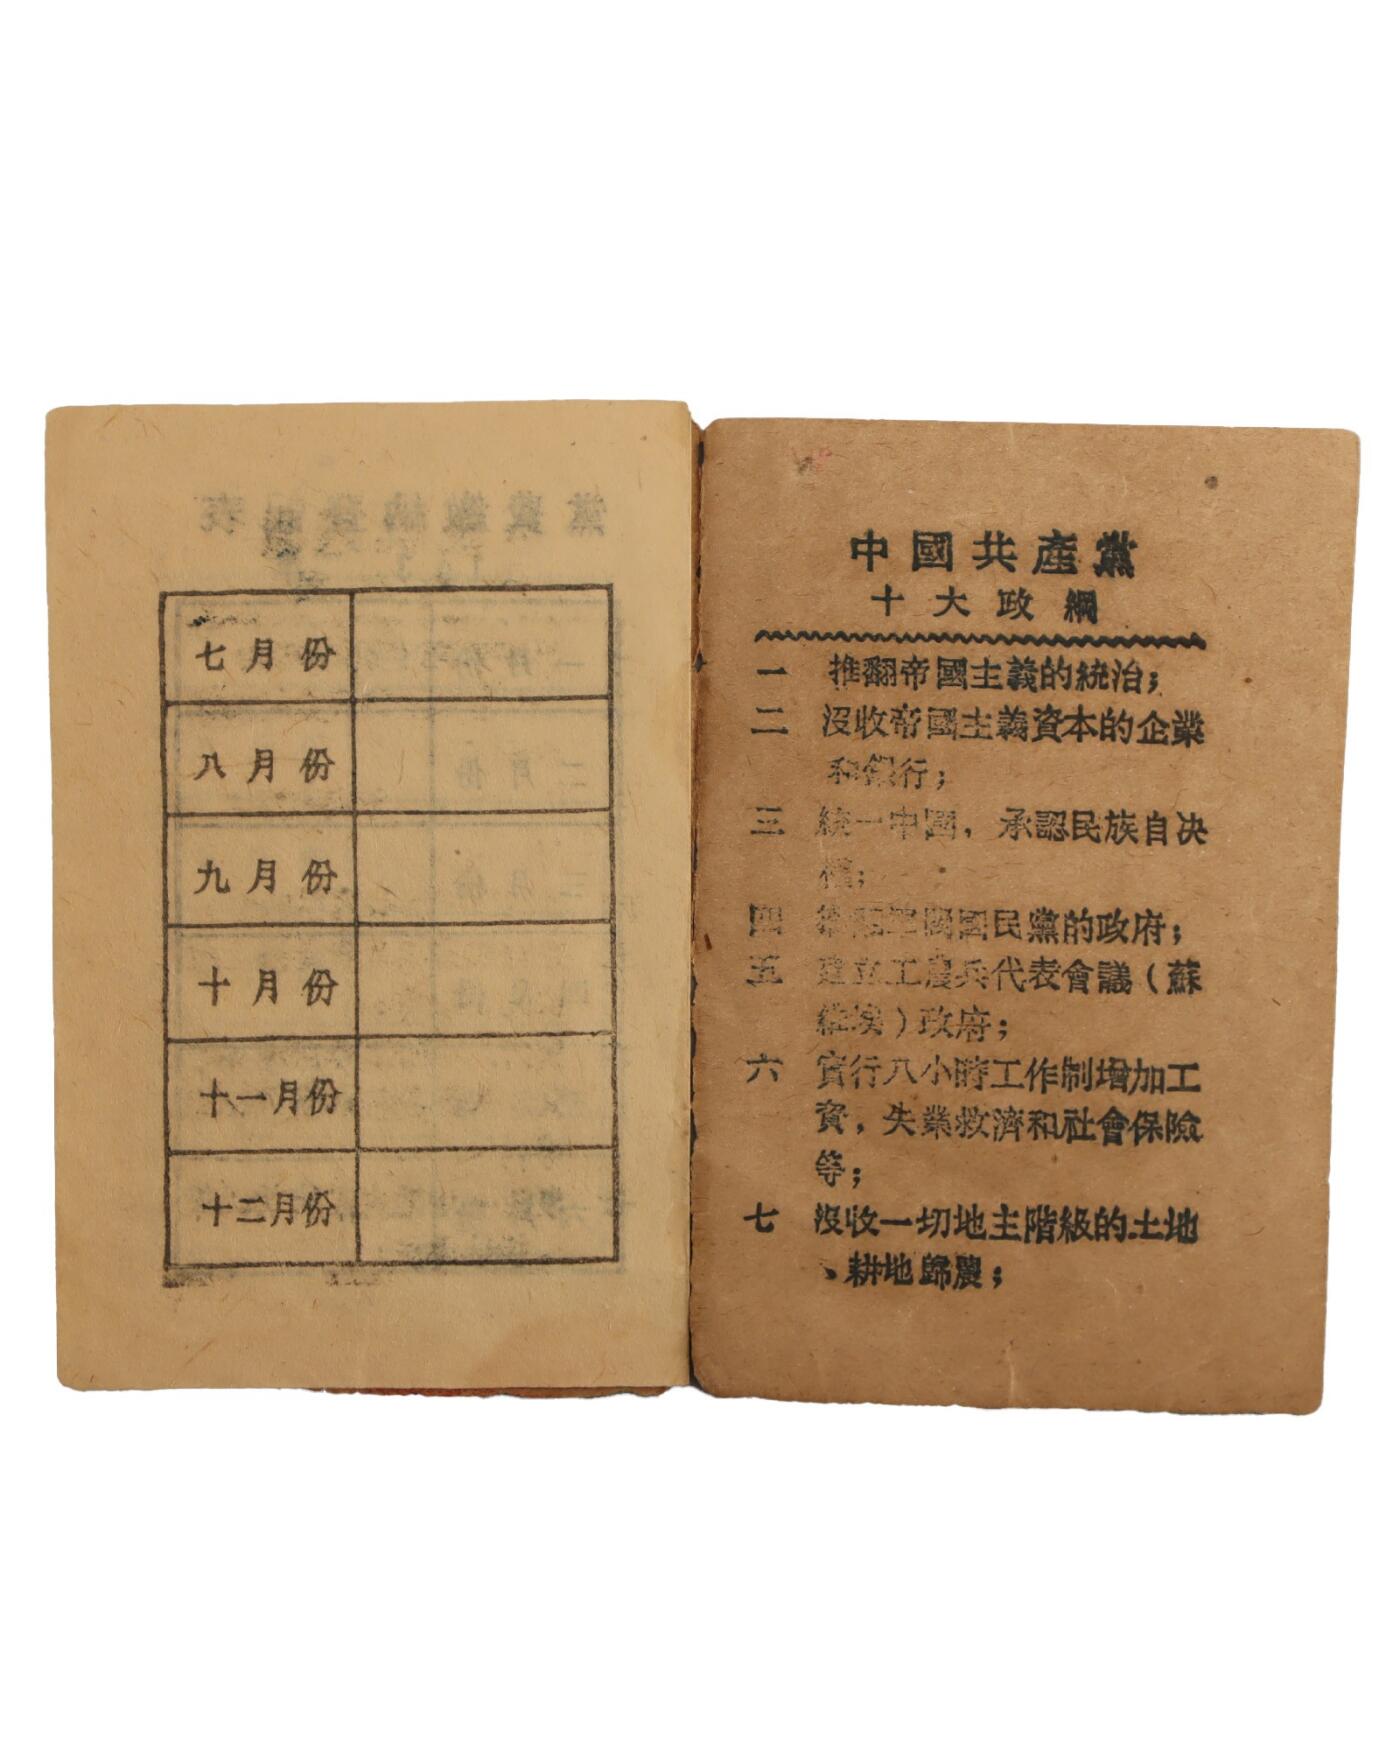 七月份
八月份
九月份
十月份
十一月份
十二月份
中國共產黨
十大政綱
一 推翻帝國主義的統治；
二 沒收帝國主義資本的企業
和銀行；
三 統一中國，承認民族自决
權；
四 推翻軍閥國民黨的政府；
五 建立工農兵代表會議（蘇
維埃）政府；
六 實行八小時工作制增加工
資，失業救濟和社會保險
等；
七 沒收一切地主階級的土地
、耕地歸農；